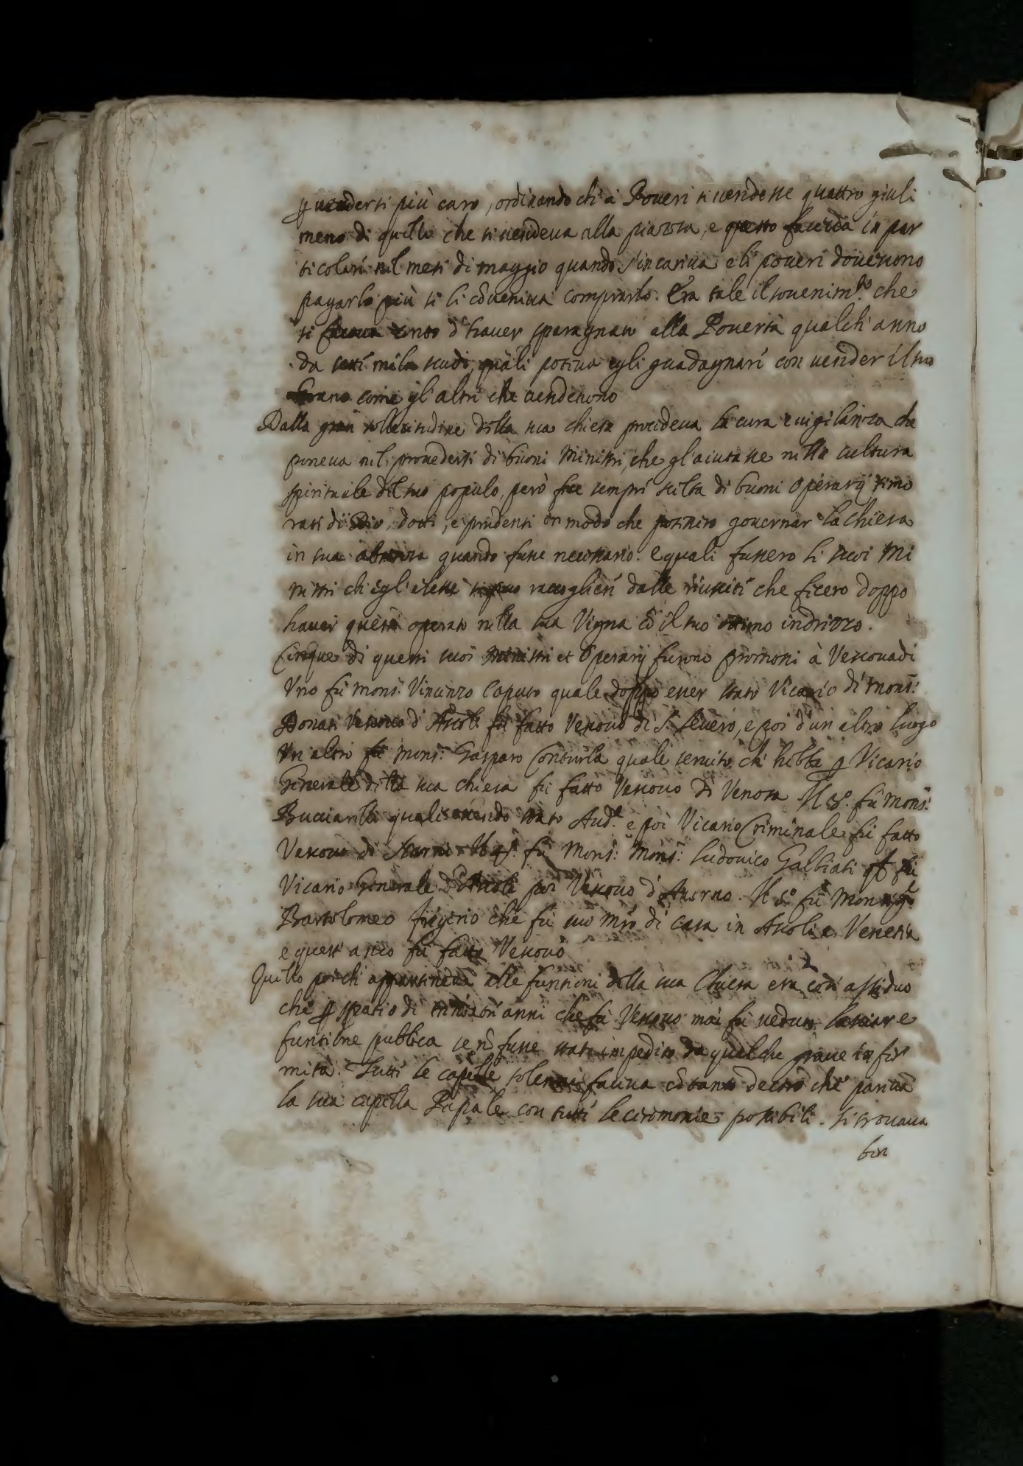 venderti più caro, ordinando ch'a Poveri si vendesse quattro giuli
meno di quello che si vendeva alla piazza, e questo faceva in par
ticolari nel mesi di maggio quando s'incariva e li poveri dovevono
pagarlo più si li cõveniva comprarlo. Era tale il sovenimto che
si faceva conto d'haver sparagnato alla Povertà qualch'anno
da mila scudi, quali poteva egli guadagnari con vender il suo
grano come gl'altri che vendevono
Dalla gran sollecitudine della sua chiesa procedeva la cura e vigilanza che
poneva nel provedersi di buoni Ministri, che gl'aiutasse nella cultura
spirituale del suo populo, però fece sempri scelta di buoni Operarij timo
rati di Dio, dotti, e prudenti in modo che potessero governar la chiesa
in sua absenza quando fusse necessario. e quali fussero li suoi Mi
nistri ch'egli elesse si può raccoglieri dalle riusciti che ficero doppo
haver questi operato nella sua Vigna cõ il suo ottimo indrizzo.
Cinque di questi suoi Ministri et Operarij furono promossi à Vescovadi
Uno fù Mons.r Vincenzo Caputo quale doppo esser stato Vicario di Mons.r
Donati Vescovo d'Ascoli fù fatto Vescovo di S. Severo, e poi d'un altro luogo
Un altro fù Mons.r Gasparo quale servito ch'hebbe p Vicario
Generale della sua chiesa fù fatto Vescovo di Venosa Il 3.o fù Mons.r
quali essendo stato Aud.e e poi Vicario Criminale fù fatto
Vescovo di fù Mons.r Mons.r Ludovico Galbiati fù
Vicario Generale d'Ascoli poi Vescovo d'. Il 5.o fù Mons.r
Bartolomeo Frigerio che fù suo Mro di casa in Ascoli e Venetia
e quest'anco fù fatto Vescovo
Quello poi ch'apparteneva alle funtioni della sua Chiesa era così assiduo
che p spatio di anni che fù Vescovo mai fù veduto lasciare
funtione pubblica se nõ fusse stato impedito da qualche grave infir
mità. Tutti le capelle solenni faceva cõ tanto decoro che pareva
la sua capella Papale con tutti le cirimonie possibili. Si trovava
ben